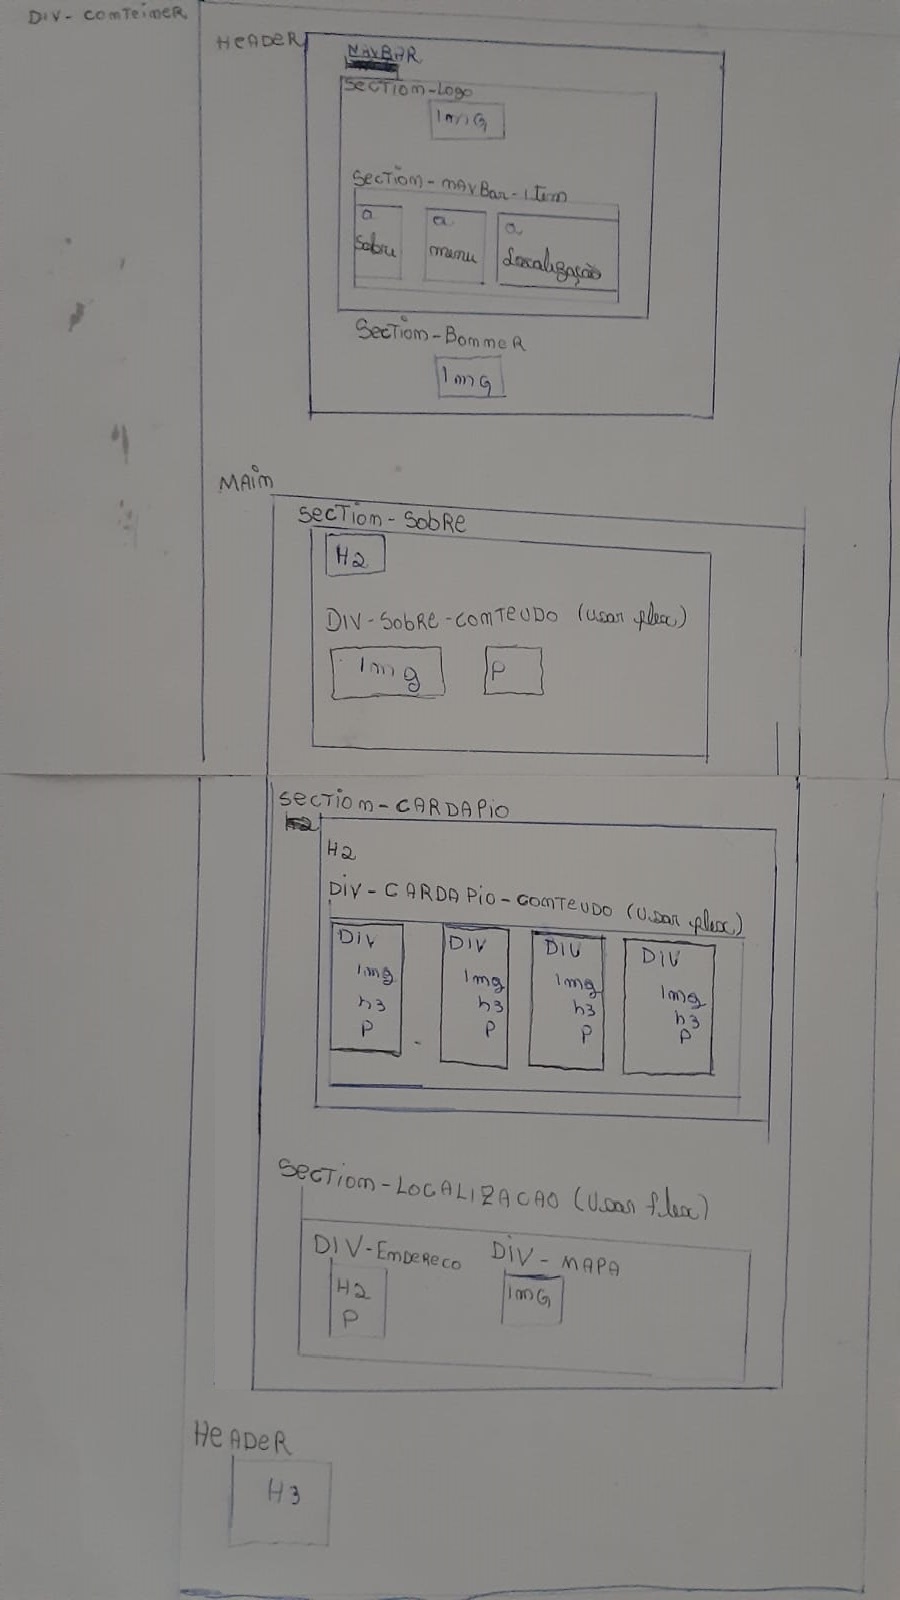 DIV - COMTEIMER
HEADER
NAVBAR
SECTIOM-LOGO
ImG
SECTIOM-mAVBar-ITem
a
a
a
Sobre
menu
Localização
SECTIOM-BOMMER
ImG
MAIM
SECTIOM-SOBRE
H2
DIV-SOBRE-COMTEUDO (usar flex)
Img
P
SECTIOM-CARDAPIO
H2
DIV-CARDAPIO-COMTEUDO (usar flex)
DIV
DIV
DIV
DIV
Img
Img
Img
Img
h3
h3
h3
h3
P
P
P
P
SECTIOM-LOCALIZACAO (usar flex)
DIV-EMDERECO
DIV-MAPA
H2
ImG
P
HEADER
H3